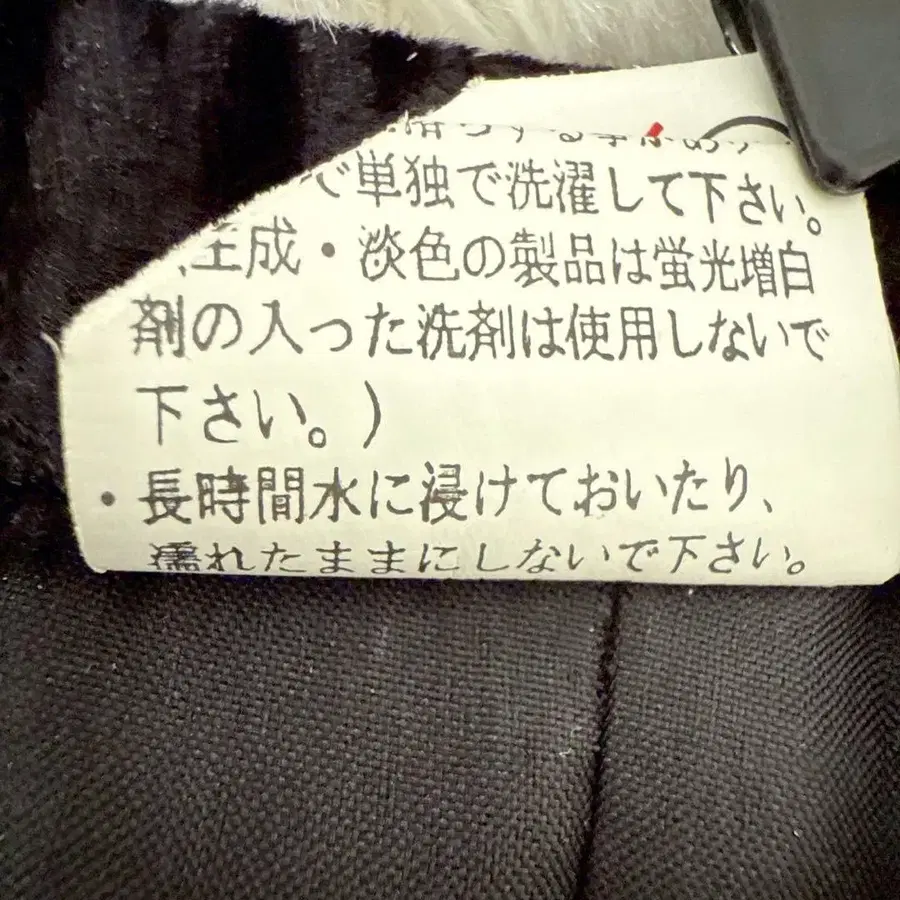 で単独で洗濯して下さい。
生成・淡色の製品は蛍光増白
剤の入った洗剤は使用しないで
下さい。)
・長時間水に浸けておいたり、
濡れたままにしないで下さい。